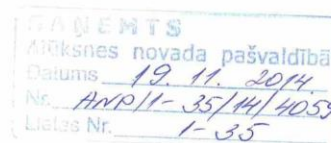 SAŅEMTS
Alūksnes novada pašvaldība
Datums 19. 11. 2014.
Nr. ANP/1-35/14/4059
Lietas Nr. 1-35